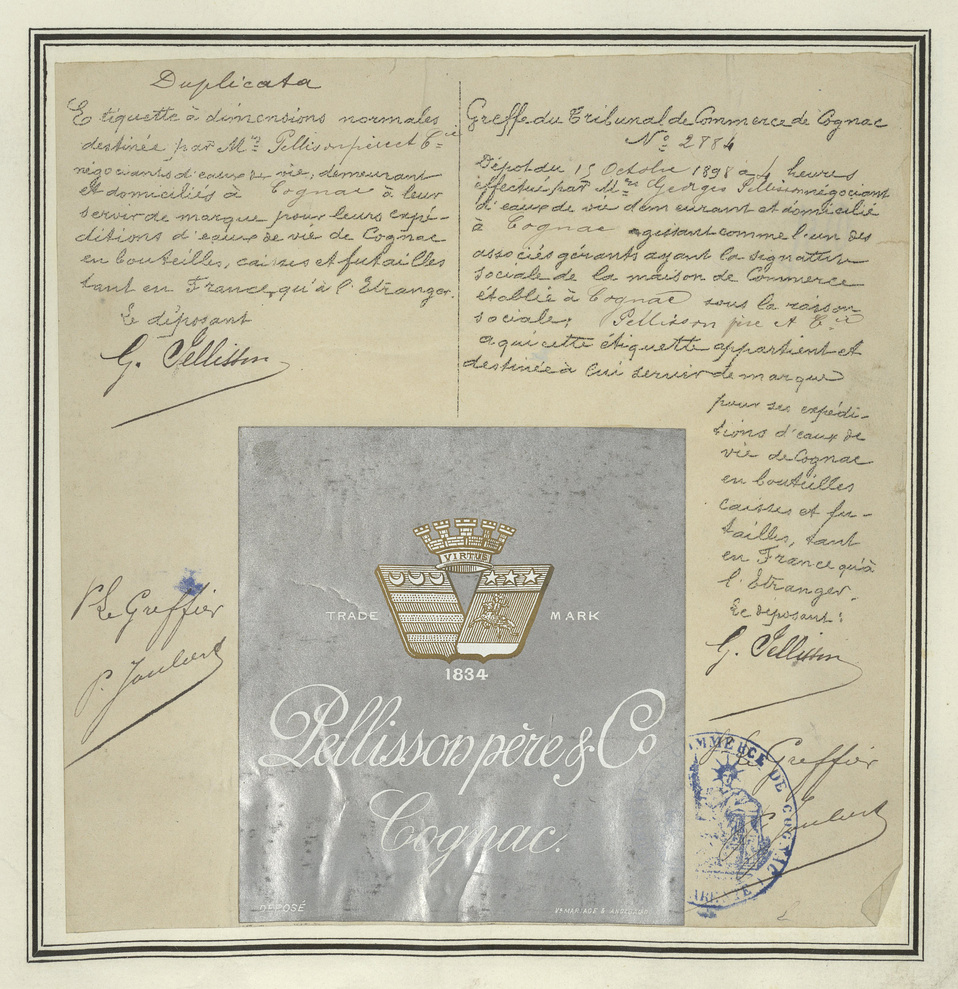 Duplicata
Etiquette à dimensions normales
destinée par Mrs Pellisson père et Cie
négociants d'eaux de vie, demeurant
et domiciliés à Cognac à leur
servir de marque pour leurs expé-
ditions d'eaux de vie de Cognac
en bouteilles, caisses et futailles
tant en France qu'à l'Etranger.
Le déposant
G. Pellisson
Greffe du Tribunal de Commerce de Cognac
No 2784
Dépot du 15 Octobre 1898 à 4 heures
effectué par Mrs Georges Pellisson négociant
d'eaux de vie demeurant et domicilié
à Cognac agissant comme l'un des
associés gérants ayant la signature
sociale de la maison de Commerce
établie à Cognac sous la raison
sociale: Pellisson père et Cie
a qui cette étiquette appartient et
destinée à lui servir de marque
pour ses expédi-
tions d'eaux de
vie de Cognac
en bouteilles
caisses et fu-
tailles, tant
en France qu'à
l'Etranger.
Le déposant:
G. Pellisson
P. Le Greffier
P. Joubert
VIRTUS
TRADE MARK
1834
Pellisson père & Co
Cognac.
DÉPOSÉ
Le Greffier
Joubert
COMMERCE DE COGNAC